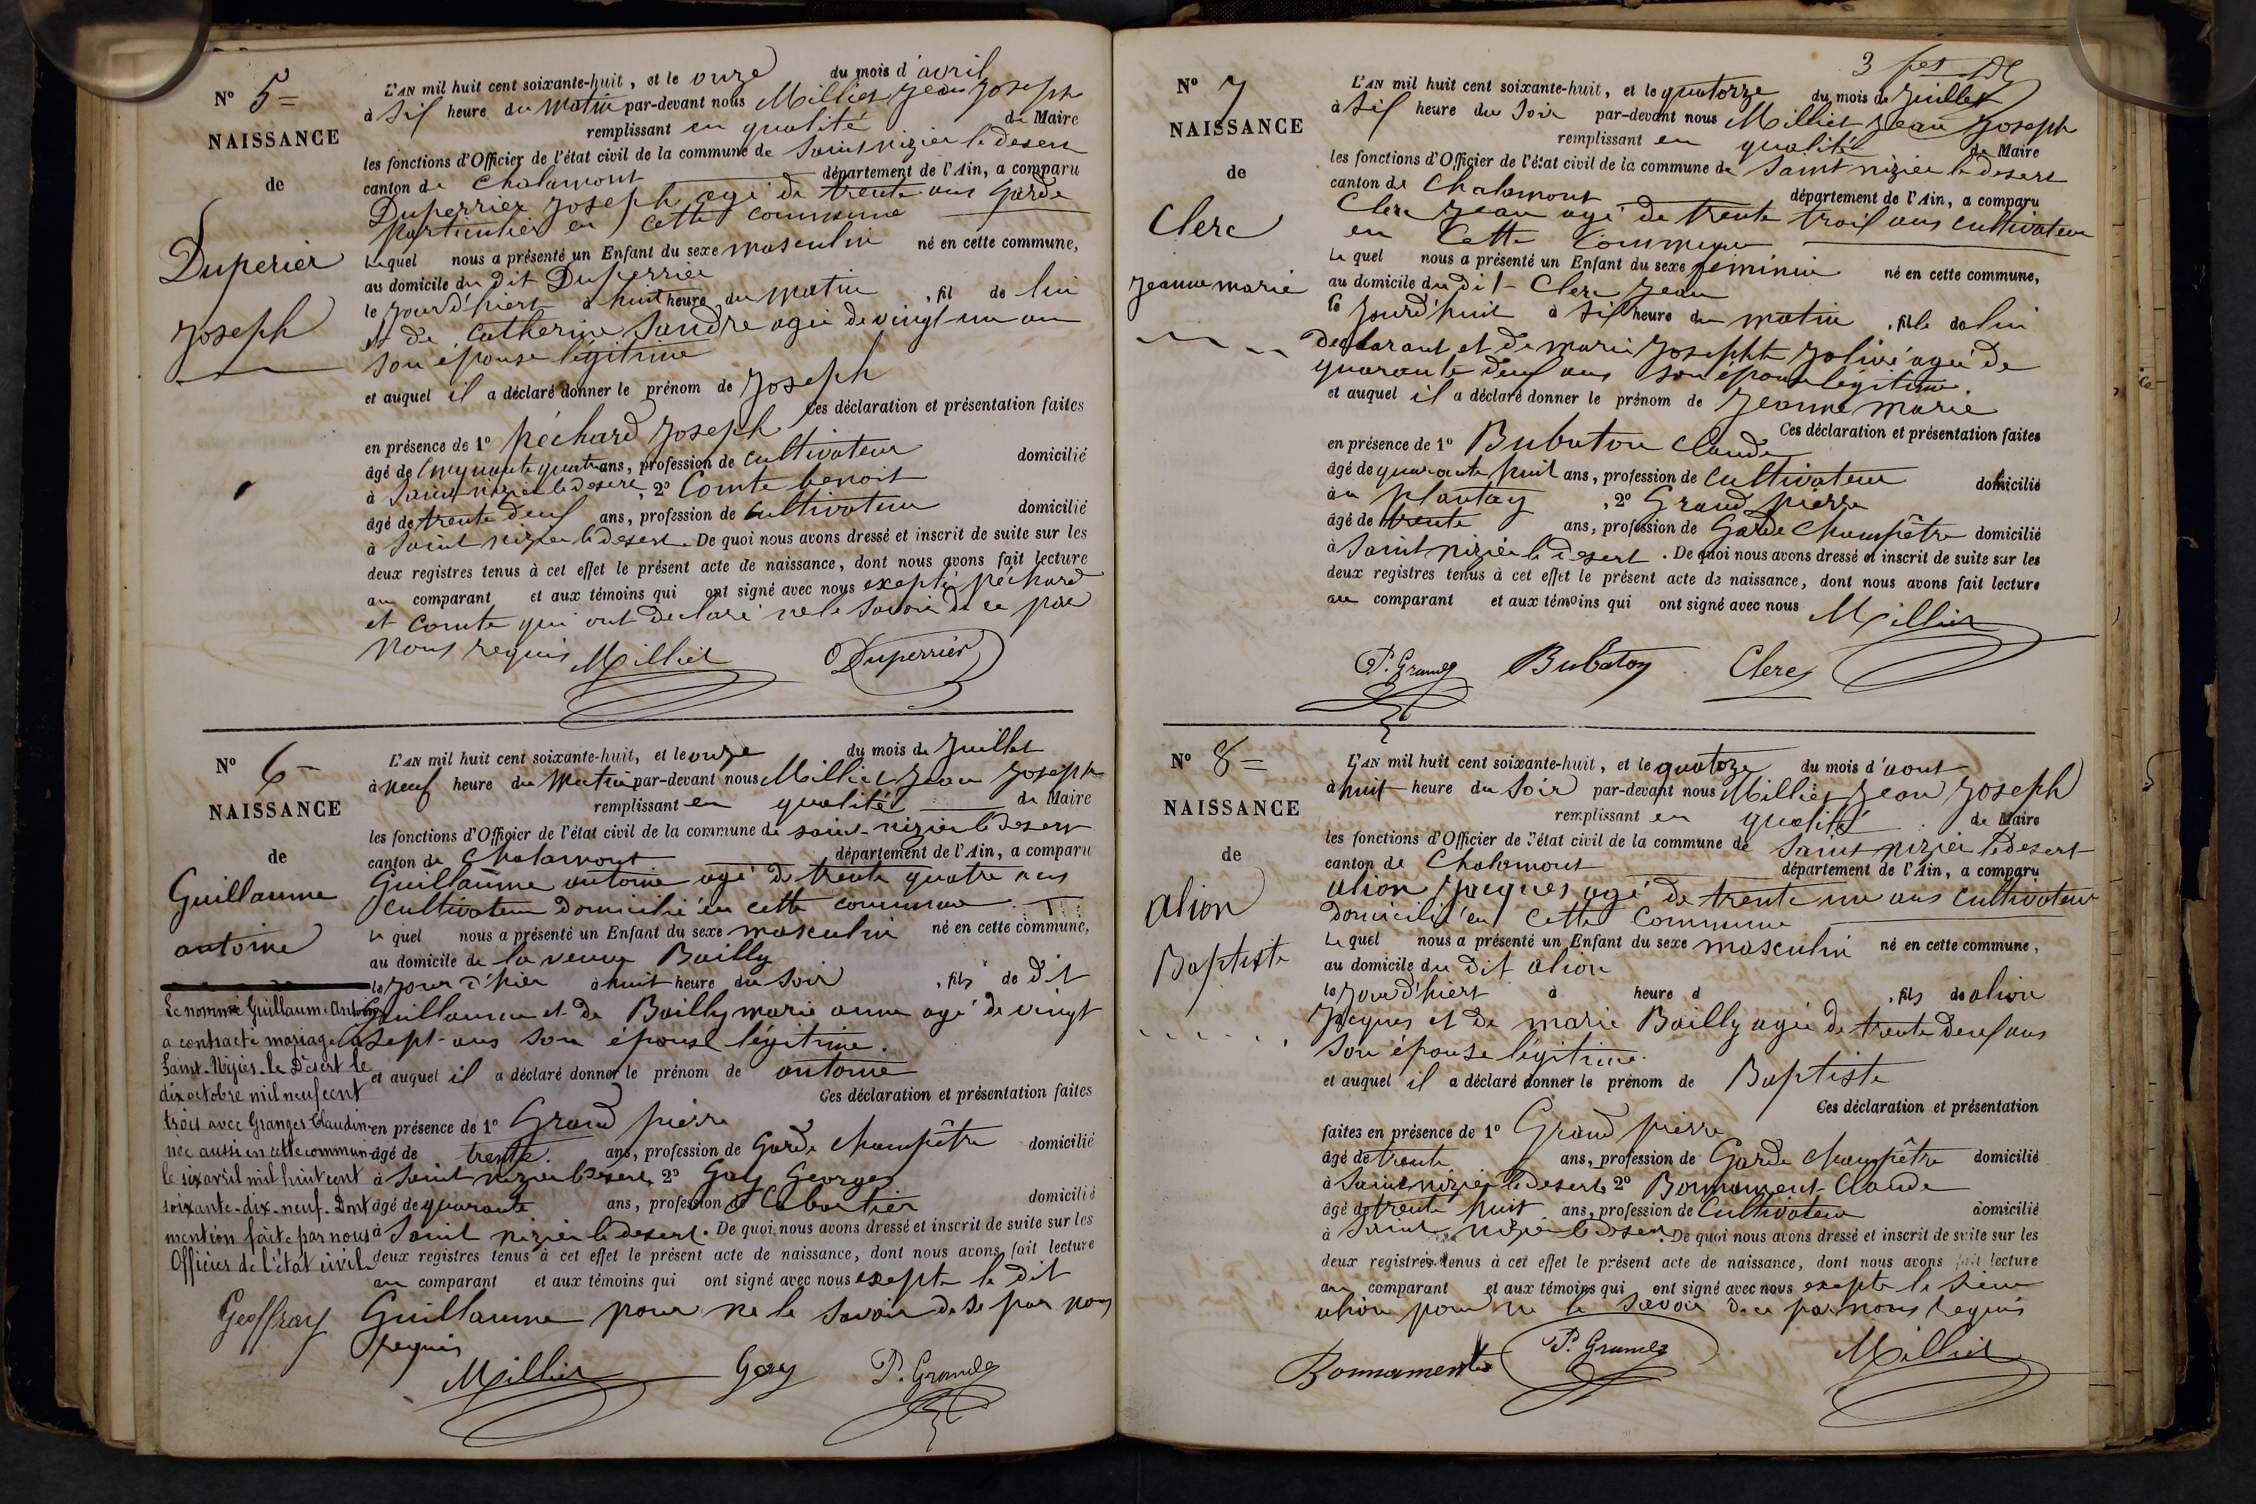 Nº 5=
NAISSANCE
de
Duperier
Joseph
L'AN mil huit cent soixante-huit, et le onze du mois d'avril
à six heure du matin par-devant nous Milliet Jean Joseph
remplissant en qualité de Maire
les fonctions d'Officier de l'état civil de la commune de Saint nizier le desert
canton de Chalamont département de l'Ain, a comparu
Duperrier Joseph agé de trente ans Garde
particulier en cette commune
Lequel nous a présenté un Enfant du sexe masculin né en cette commune,
au domicile du dit Duperrier
le jourd'hiert à huit heure du matin, fil de lui
et de Catherine Sandre agée de vingt un an
son épouse légitime
et auquel il a déclaré donner le prénom de Joseph
Ces déclaration et présentation faites
en présence de 1º péchard Joseph
âgé de cinquante quatre ans, profession de cultivateur domicilié
à Saint nizier le desert, 2º Comte benoit
âgé de trente deux ans, profession de cultivateur domicilié
à Saint nizier le desert. De quoi nous avons dressé et inscrit de suite sur les
deux registres tenus à cet effet le présent acte de naissance, dont nous avons fait lecture
au comparant et aux témoins qui ont signé avec nous exepté péchard
et Comte qui ont declaré ne le savoir de ce par
nous requis Milliet Duperrier
Nº 6=
NAISSANCE
de
Guillaume
antoine
L'AN mil huit cent soixante-huit, et le onze du mois de Juillet
à neuf heure du matin par-devant nous Milliet Jean Joseph
remplissant en qualité de Maire
les fonctions d'Officier de l'état civil de la commune de saint-nizier le Desert
canton de Chalamont département de l'Ain, a comparu
Guillaume antoine agé de trente quatre ans
cultivateur domicilié en cette commune
Lequel nous a présenté un Enfant du sexe masculin né en cette commune,
au domicile de la veuve Bailly
le jour d'hier à huit heure du soir, fils de dit
Guillaume et de Bailly marie anne agé de vingt
sept ans son épouse légitime.
et auquel il a déclaré donner le prénom de antoine
Ces déclaration et présentation faites
en présence de 1º Grand pierre
âgé de trente ans, profession de Garde champêtre domicilié
à Saint nizier le Desert, 2º Gay Georges
âgé de quarante ans, profession de Cabartier domicilié
à Saint nizier le desert. De quoi nous avons dressé et inscrit de suite sur les
deux registres tenus à cet effet le présent acte de naissance, dont nous avons fait lecture
au comparant et aux témoins qui ont signé avec nous exepte le dit
Guillaume pour ne le savoir de se par nous
requis
Milliet Gay P. Grand
Le nommé Guillaume Antoine
a contracté mariage à
Saint-Nizier-le-Désert le
dix octobre mil neuf cent
trois avec Granger Claudine
née aussi en cette commune
le six avril mil huit cent
soixante-dix-neuf. Dont
mention faite par nous
Officier de l'état civil
Geoffray
3 fet
Nº 7
NAISSANCE
de
Clerc
Jeanne marie
L'AN mil huit cent soixante-huit, et le quatorze du mois de Juillet
à six heure du Soir par-devant nous Milliet Jean Joseph
remplissant en qualité de Maire
les fonctions d'Officier de l'état civil de la commune de Saint nizier le desert
canton de Chalamont département de l'Ain, a comparu
Clerc Jean agé de trente trois ans cultivateur
en Cette Commune
Lequel nous a présenté un Enfant du sexe féminin né en cette commune,
au domicile du dit Clerc Jean
le jourd'huit à six heure du matin, fille de lui
declarant et de marie Josephte Jolivé agée de
quarante deux ans son épouse légitime.
et auquel il a déclaré donner le prénom de Jeanne marie
Ces déclaration et présentation faites
en présence de 1º Bubaton Claude
âgé de quarante huit ans, profession de Cultivateur domicilié
au plantay, 2º Grand pierre
âgé de trente ans, profession de Garde Champêtre domicilié
à Saint nizier le desert. De quoi nous avons dressé et inscrit de suite sur les
deux registres tenus à cet effet le présent acte de naissance, dont nous avons fait lecture
au comparant et aux témoins qui ont signé avec nous Milliet
P. Grand Bubaton Clerc
Nº 8=
NAISSANCE
de
alion
Baptiste
L'AN mil huit cent soixante-huit, et le quatoze du mois d'aout
à huit heure du Soir par-devant nous Milliet Jean Joseph
remplissant en qualité de Maire
les fonctions d'Officier de l'état civil de la commune de Saint nizier le desert
canton de Chalamont département de l'Ain, a comparu
alion Jacques agé de trente un ans cultivateur
domicilié en Cette Commune
Lequel nous a présenté un Enfant du sexe masculin né en cette commune,
au domicile du dit alion
le jourd'hiert à heure d, fils de alion
Jacques et de marie Bailly agée de trente deux ans
son épouse légitime.
et auquel il a déclaré donner le prénom de Baptiste
Ces déclaration et présentation
faites en présence de 1º Grand pierre
âgé de trente ans, profession de Garde Champêtre domicilié
à Saint nizier le desert, 2º Bonnament Claude
âgé de trente huit ans, profession de Cultivateur domicilié
à Saint nizier le desert. De quoi nous avons dressé et inscrit de suite sur les
deux registres tenus à cet effet le présent acte de naissance, dont nous avons fait lecture
au comparant et aux témoins qui ont signé avec nous exepte le sieur
alion pour ne le savoir de ce par nous requis
Bonnament P. Grand Milliet